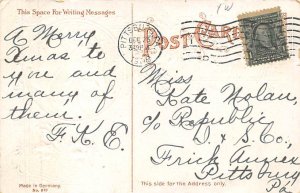 This Space For Writing Messages
A Merry
Xmas to
you and
many of
them.
F. K. E.
Made in Germany
No. 819
POST CARD
PITTSBURG
DEC 23
Miss
Kate Nolan,
c/o Republic
D. & S. Co.,
Frick Annex
Pittsburg
Pa
This side for the Address only.